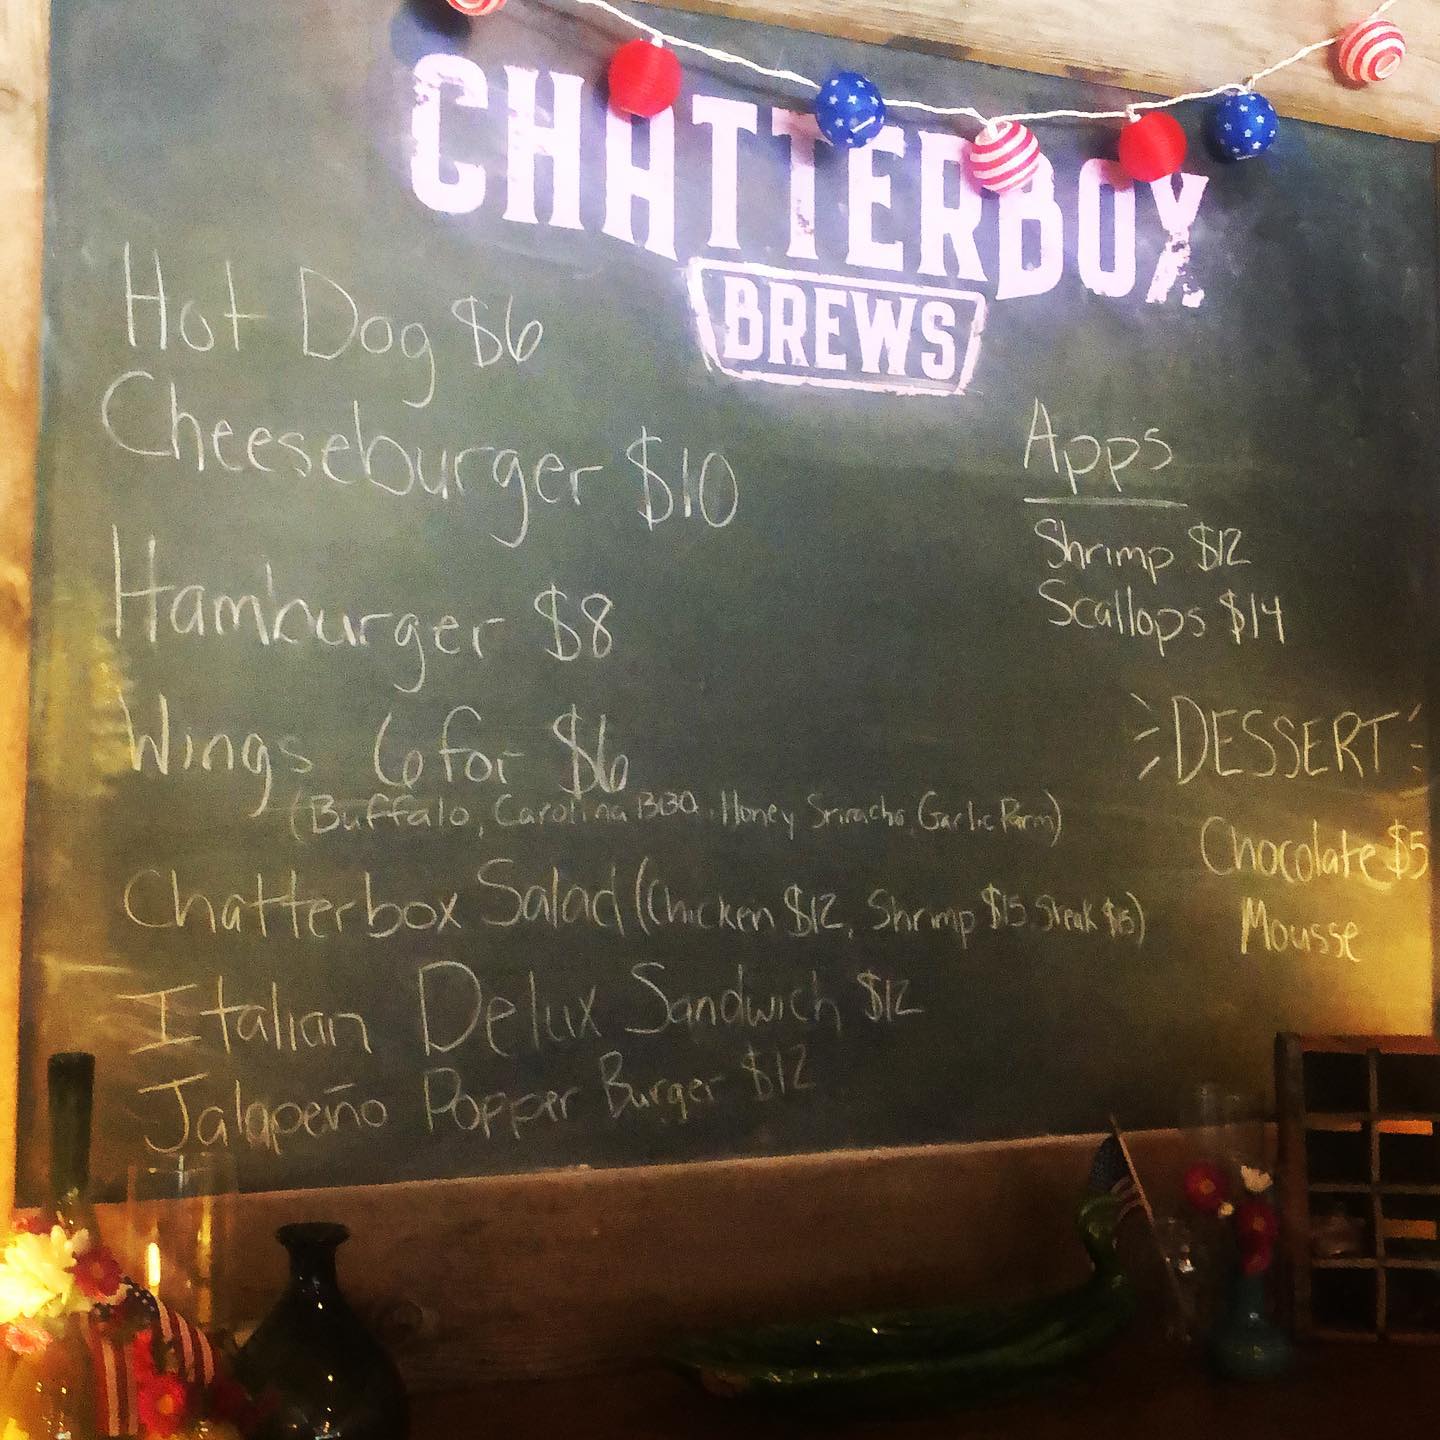 CHATTERBOX
BREWS
Hot Dog $6
Cheeseburger $10
Hamburger $8
Wings 6 for $6
(Buffalo, Carolina BBQ, Honey Sriracha, Garlic Parm)
Chatterbox Salad (Chicken $12, Shrimp $15, Steak $15)
Italian Delux Sandwich $12
Jalapeño Popper Burger $12
Apps
Shrimp $12
Scallops $14
DESSERT
Chocolate $5
Mousse